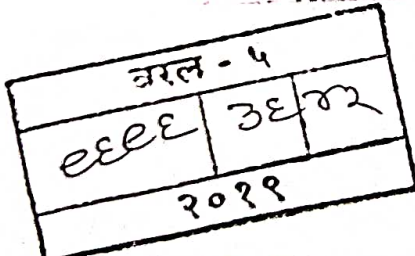 बरल - ५
९६९६ ३६ ४२
२०१९